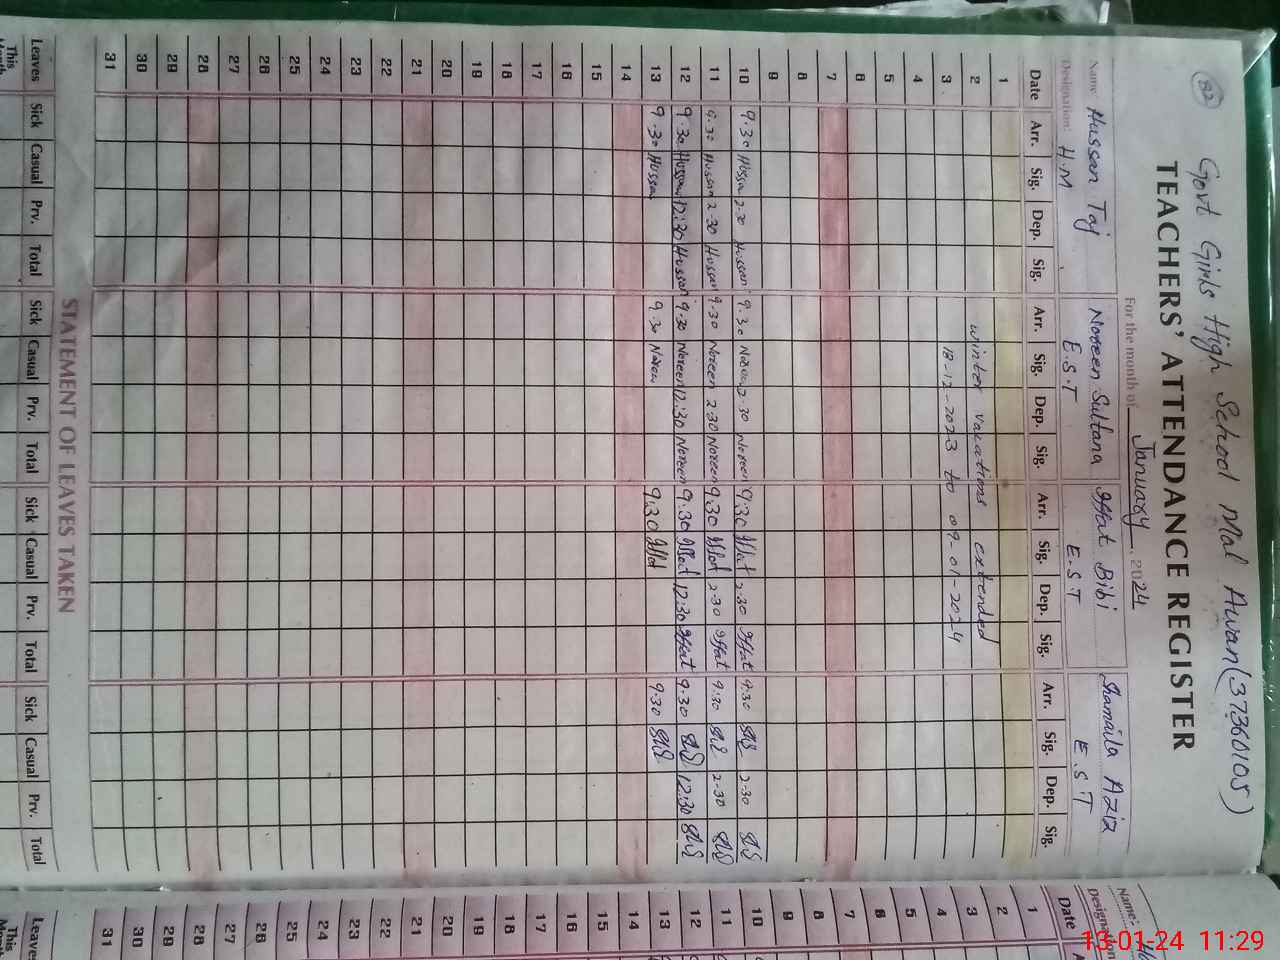 82
Govt Girls High School Mal Awan (37360105)
TEACHERS' ATTENDANCE REGISTER
For the month of January, 2024
Name: Hussan Taj Noreen Sultana Iffat Bibi Shamaila Aziz
Designation: H.M E.S.T E.S.T E.S.T
Date Arr. Sig. Dep. Sig. Arr. Sig. Dep. Sig. Arr. Sig. Dep. Sig. Arr. Sig. Dep. Sig.
1
2 winter vacations extended
3 18-12-2023 to 09-01-2024
4
5
6
7
8
9
10 9.30 Hussan 2.30 Hussan 9.30 Noreen 2.30 Noreen 9.30 Iffat 2.30 Iffat 9.30 2.30
11 9.30 Hussan 2.30 Hussan 9.30 Noreen 2.30 Noreen 9.30 Iffat 2.30 Iffat 9.30 2.30
12 9.30 Hussan 12:30 Hussan 9.30 Noreen 12:30 Noreen 9.30 Iffat 12:30 Iffat 9.30 12:30
13 9.30 Hussan 9.30 Noreen 9.30 Iffat 9.30
14
15
16
17
18
19
20
21
22
23
24
25
26
27
28
29
30
31
STATEMENT OF LEAVES TAKEN
Leaves Sick Casual Prv. Total Sick Casual Prv. Total Sick Casual Prv. Total Sick Casual Prv. Total
This
Name:
Designation
Date
1
2
3
4
5
6
7
8
9
10
11
12
13
14
15
16
17
18
19
20
21
22
23
24
25
26
27
28
29
30
31
Leaves
This
13-01-24 11:29